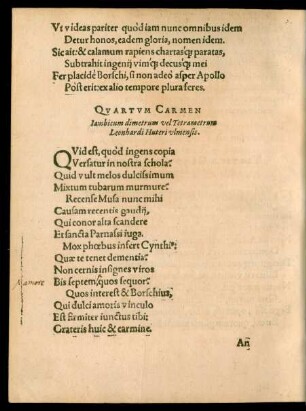 Vt videas pariter quòd iam nunc omnibus idem
Detur honos, eadem gloria, nomen idem.
Sic ait: & calamum rapiens chartasq́; paratas,
Subtrahit ingenij vimq́; decusq́; mei
Fer placidè Borschi, si non adeò asper Apollo
Pòst erit: ex alio tempore plura feres.
QVARTVM CARMEN
Iambicum dimetrum vel Tetrametrum
Leonhardi Huteri vlmensis.
QVid est, quòd ingens copia
Versatur in nostra schola?
Quid vult melos dulcissimum
Mixtum tubarum murmure?
Recense Musa nunc mihi
Causam recentis gaudij,
Qui conor alta scandere
Et sancta Parnassi iuga.
Mox phœbus infert Cynthiꝰ;
Quæ te tenet dementia?
Non cernis insignes viros
Bis septem, quos sequor?
amore
Quos interest & Borschius,
Qui dulci amoris vinculo
Est firmiter iunctus tibi;
Grateris huic & carmine.
An